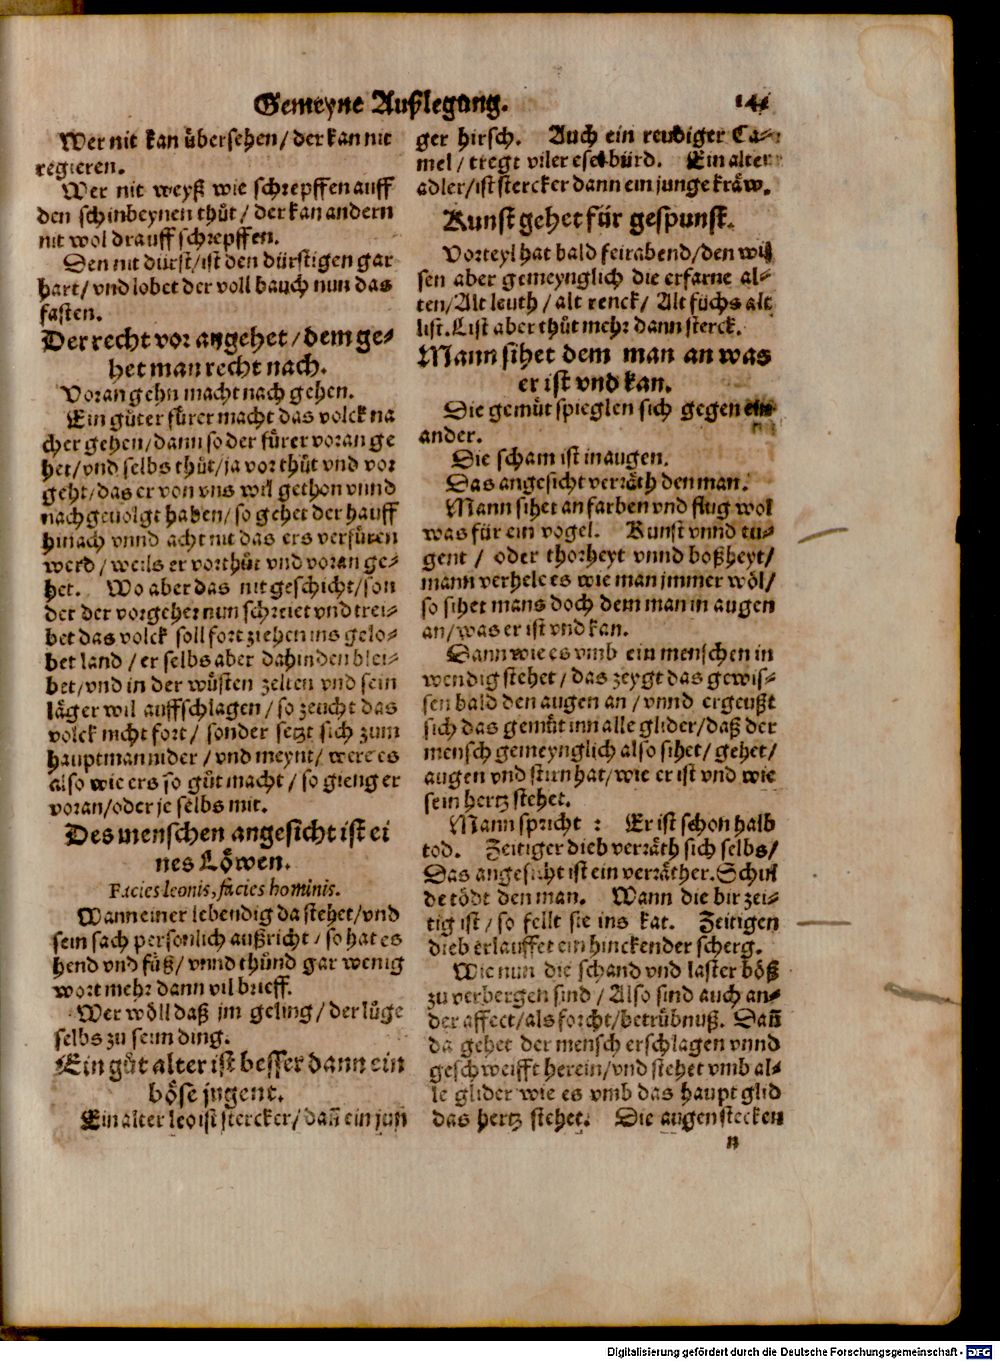 Gemeyne Außlegung. 141
Wer nit kan übersehen/ der kan nit
regieren.
Wer nit weyß wie schrepffen auff
den schinbeynen thůt/ der kan andern
nit wol drauff schrepffen.
Den nit dürst/ ist den dürstigen gar
hart/ vnd lobet der voll bauch nun das
fasten.
Der recht vor angehet/ dem ge-
het man recht nach.
Vorangehn macht nach gehen.
Ein gůter fürer macht das volck na
cher gehen/ dann so der fürer voran ge
het/ vnd selbs thůt/ ja vor thůt vnd vor
geht/ das er von vns wil gethon vnnd
nachgeuolgt haben/ so gehet der hauff
hinach vnnd acht nit das ers verfüren
werd/ weils er vorthůt vnd voran ge-
het. Wo aber das nit geschicht/ son
der der vorgeher nun schreiet vnd trei-
bet das volck soll fort ziehen ins gelo-
bet land/ er selbs aber dahinden blei-
bet/ vnd in der wüsten zelten vnd sein
läger wil auffschlagen/ so zeucht das
volck nicht fort/ sonder setzt sich zum
hauptman nider/ vnd meynt/ were es
also wie ers so gůt macht/ so gieng er
voran/ oder je selbs mit.
Des menschen angesicht ist ei
nes Löwen.
Facies leonis, facies hominis.
Wann einer lebendig da stehet/ vnd
sein sach personlich außricht/ so hat es
hend vnd füß/ vnnd thůnd gar wenig
wort mehr dann vil brieff.
Wer wöll daß jm geling/ der lůge
selbs zu seim ding.
Ein gůt alter ist besser dann ein
böse jugent.
Ein alter leo ist stercker/ dañ ein jun
ger hirsch. Auch ein reudiger Ca-
mel/ tregt viler esel bürd. Ein alter
adler/ ist stercker dann ein junge kräw.
Kunst gehet für gespunst.
Vorteyl hat bald feirabend/ den wis
sen aber gemeynglich die erfarne al-
ten/ Alt leuth/ alt renck/ Alt füchs alt
list. List aber thůt mehr dann sterck.
Mann sihet dem man an was
er ist vnd kan.
Die gemüt spieglen sich gegen ein
ander.
Die scham ist in augen.
Das angesicht verräth den man.
Mann sihet an farben vnd flug wol
was für ein vogel. Kunst vnnd tu-
gent/ oder thorheyt vnnd boßheyt/
mann verhele es wie man jmmer wöl/
so sihet mans doch dem man in augen
an/ was er ist vnd kan.
Dann wie es vmb ein menschen in
wendig stehet/ das zeygt das gewis-
sen bald den augen an/ vnnd ergeußt
sich das gemůt inn alle glider/ daß der
mensch gemeynglich also sihet/ gehet/
augen vnd stirn hat/ wie er ist vnd wie
sein hertz stehet.
Mann spricht: Er ist schon halb
tod. Zeitiger dieb verräth sich selbs/
Das angesicht ist ein verräther. Schul
de tödt den man. Wann die bir zei-
tig ist/ so fellt sie ins kat. Zeitigen
dieb erlauffet ein hinckender scherg.
Wie nun die schand vnd laster böß
zu verbergen sind/ Also sind auch an-
der affect/ als forcht/ betrübnuß. Dañ
da gehet der mensch erschlagen vnnd
geschweifft herein/ vnd stehet vmb al-
le glider wie es vmb das haupt glid
das hertz stehet. Die augen stecken
n
Digitalisierung gefördert durch die Deutsche Forschungsgemeinschaft - DFG